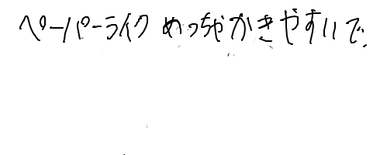 ペーパーライク めっちゃかきやすいで.